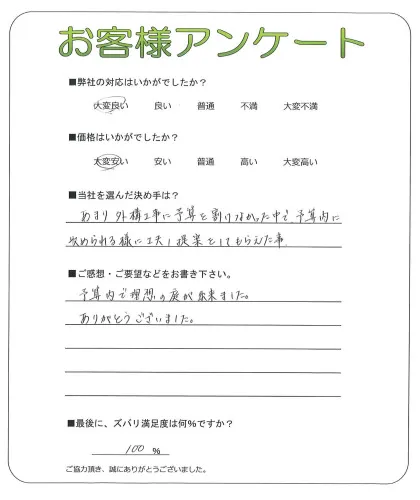 お客様アンケート
■弊社の対応はいかがでしたか？
大変良い 良い 普通 不満 大変不満
■価格はいかがでしたか？
大変安い 安い 普通 高い 大変高い
■当社を選んだ決め手は？
あまり外構工事に予算を割けなかった中で予算内に
収められる様に工夫し提案をしてもらえた事
■ご感想・ご要望などをお書き下さい。
予算内で理想の庭が出来ました。
ありがとうございました。
■最後に、ズバリ満足度は何％ですか？
100 %
ご協力頂き、誠にありがとうございました。